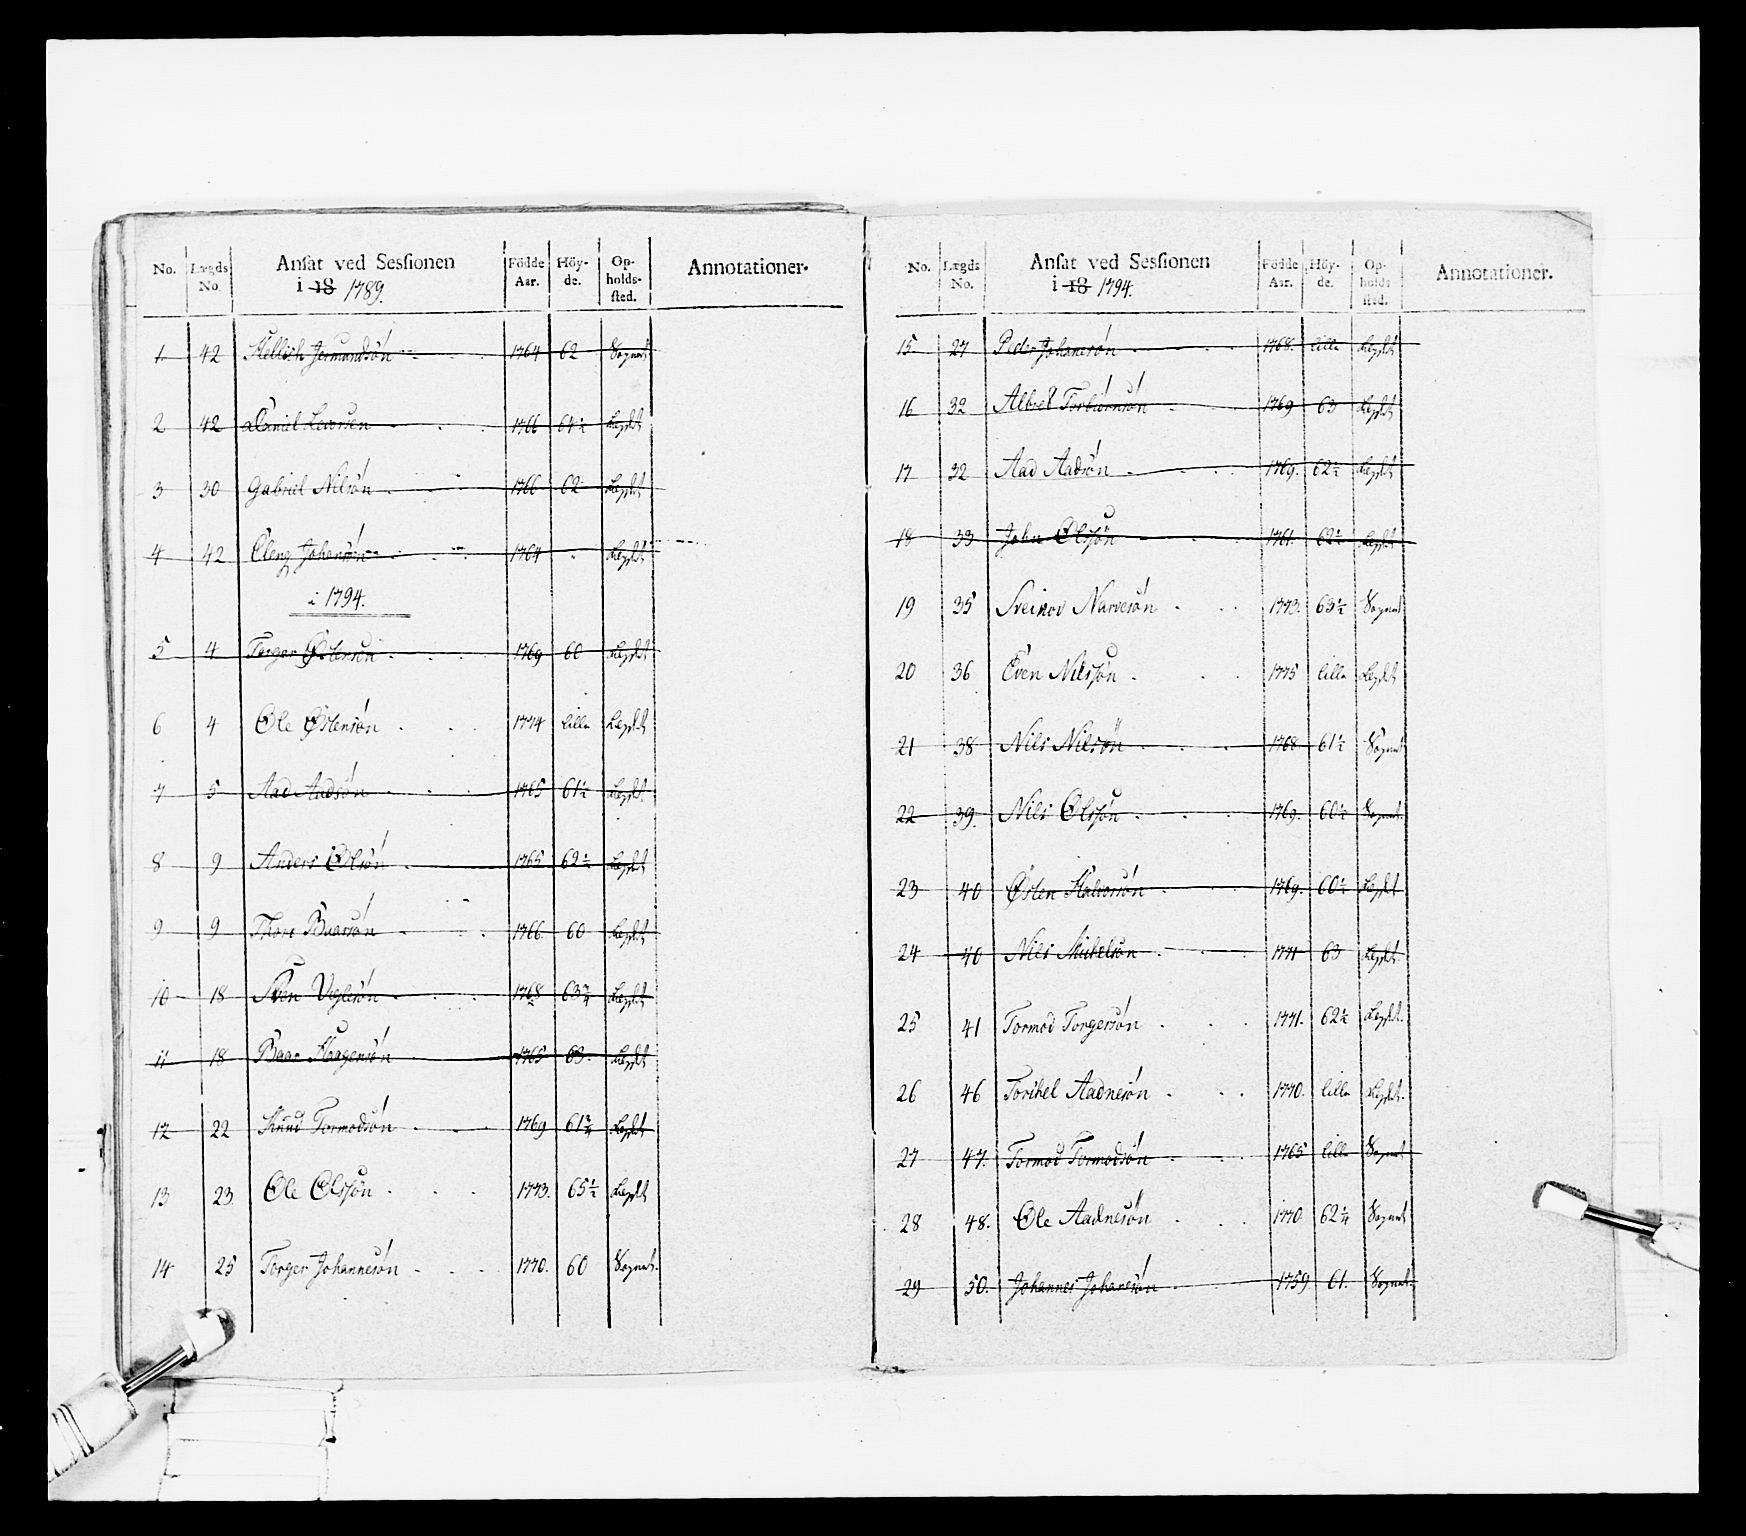 No. Lægds No. Ansat ved Sessionen i 18 1789. Födde Aar. Höyde. Opholdssted. Annotationer.
1. 42 Jermundsön 1764 62 Sognet
2 42 Daniel 1766 64½ Legdet
3 30 Gabriel Nilsön 1766 62 Legdet
4 42 Johansön 1764 - Legdet
i 1794.
5 4 Torger Østensön 1769 60 Legdet
6 4 Ole Østensön 1774 lille Legdet
7 5 Aad Aadsön 1765 61½ Legdet
8 9 Anders Olsön 1765 62½ Legdet
9 9 Thore Baarsön 1766 60 Legdet
10 18 Sven 1768 63¾ Legdet
11 18 Baar Haagensön 1765 63. Legdet
12 22 Knud Tormodsön 1769 61¾ Legdet
13 23 Ole Olssön 1773. 65½ Legdet
14 25 Torger Johannesön 1770. 60 Sognet.
No. Lægds No. Ansat ved Sessionen i 18 1794. Födde Aar. Höyde. Opholdssted. Annotationer.
15 27 Peder Johanesön 1768. lille Legdet
16 32 Torbiörnsön 1769 63 Legdet
17 32 Aad Aadsön 1769. 62½ Legdet
18 33 John Olssön 1761. 62½ Legdet
19 35 Narvesön 1773. 63½ Sognet
20 36 Even Nilssön 1775 lille Legdet
21 38 Nils Nilsön 1768 61½ Sognet
22 39. Nils Olssön 1769. 60½ Sognet.
23 40 Østen Halvorsön 1769. 60½ Legdet
24 40 Nils Mickelsön 1771 63 Legdet.
25 41 Tormod Torgersön 1771. 62½ Legdet.
26 46 Torkel Aadnesön 1770. lille Legdet.
27 47. Tormod Tormodsön 1765 lille Sognet
28 48. Ole Aadnesön 1770 62¼ Sognet
29 50. Johannes Johansön 1759. 61. Sognet